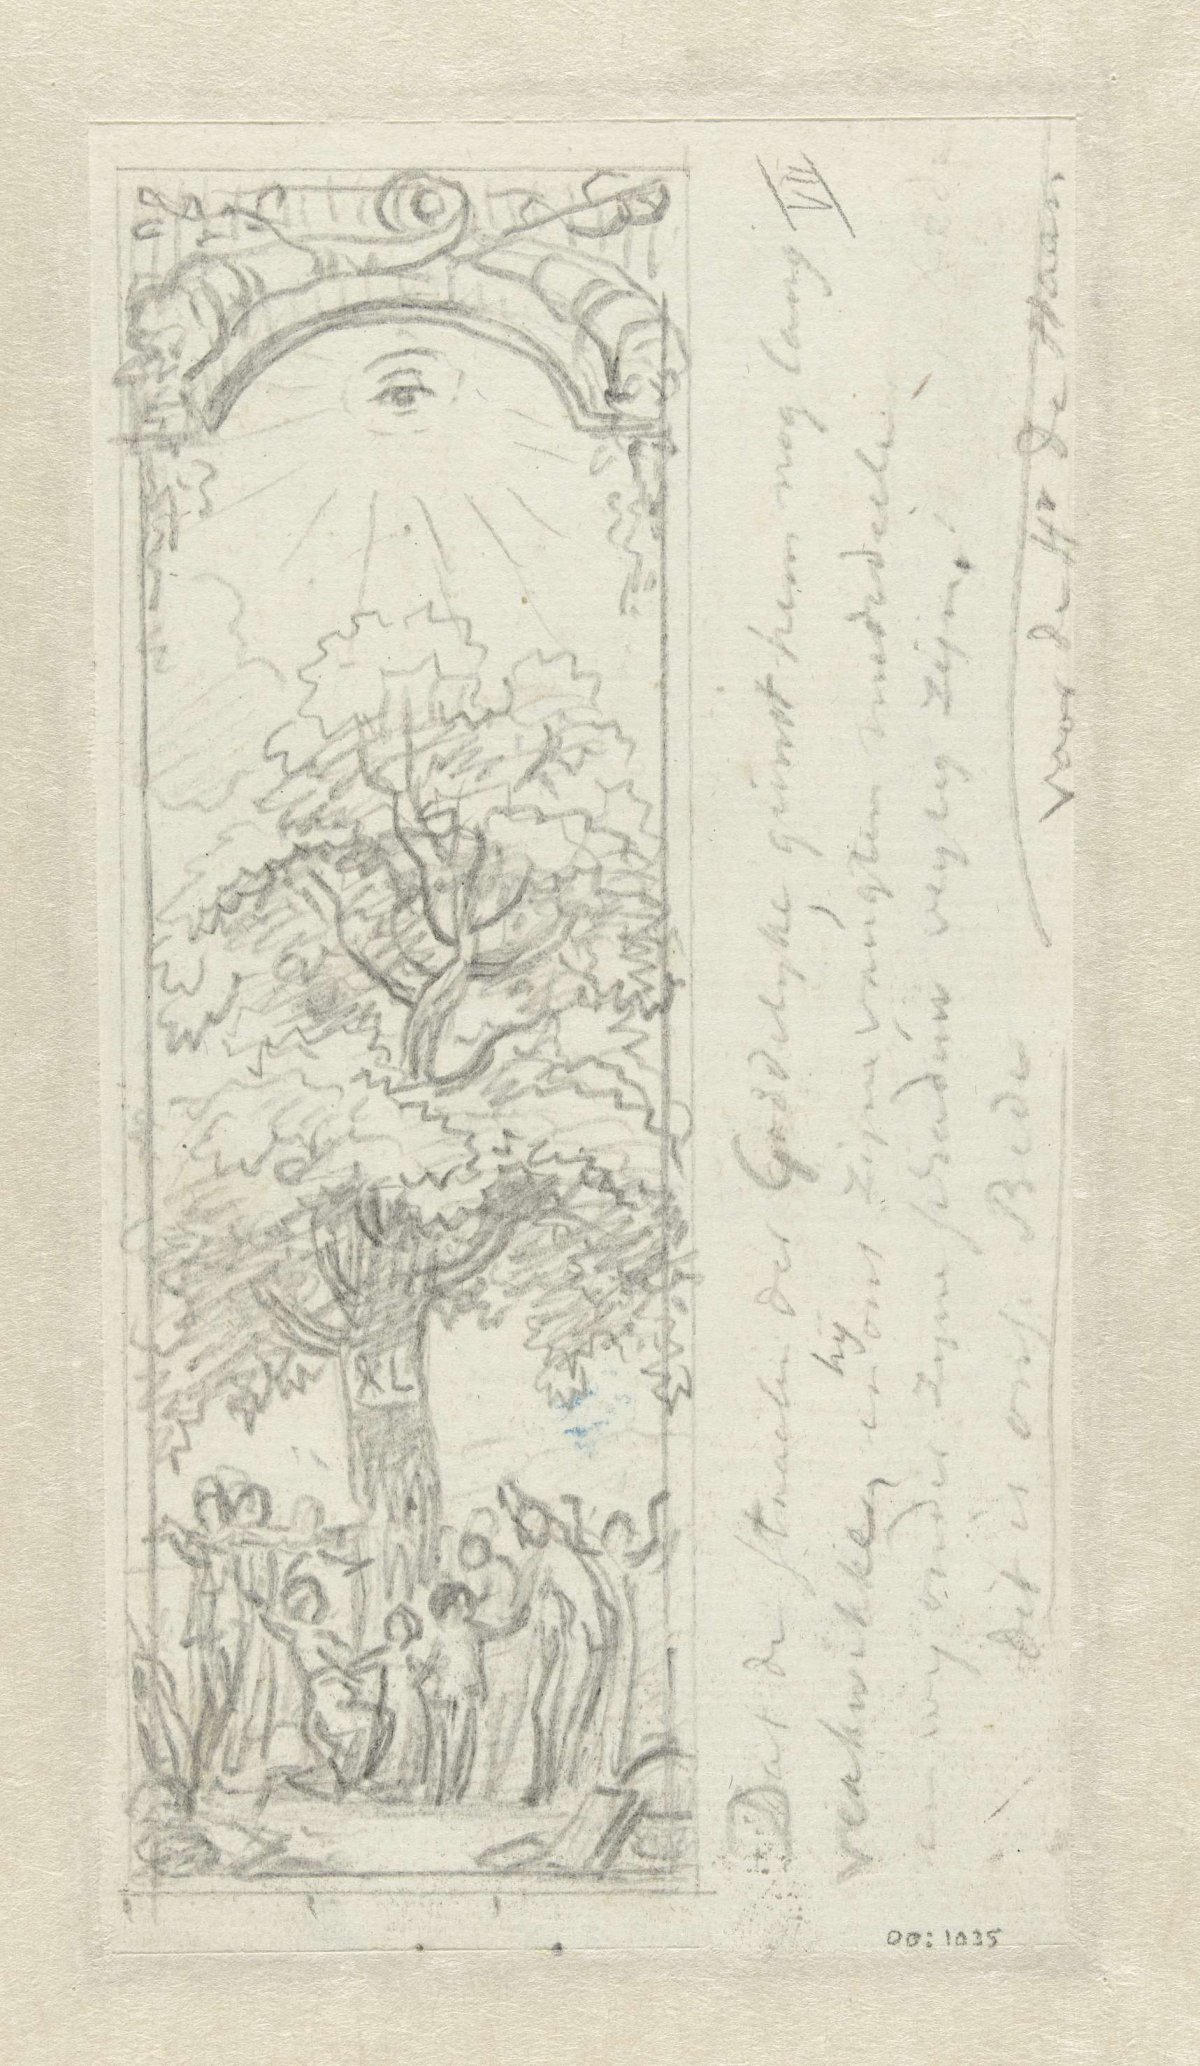 VII
Dat de straalen der Goddelyke gunst hem nog lang
verkwikke, en hy ons zyne vrugten mededeele
en wy onder zyne schaduw veylig zyn!
Dit is onse Bede
voor de Hr de Haan
XL
00:1035